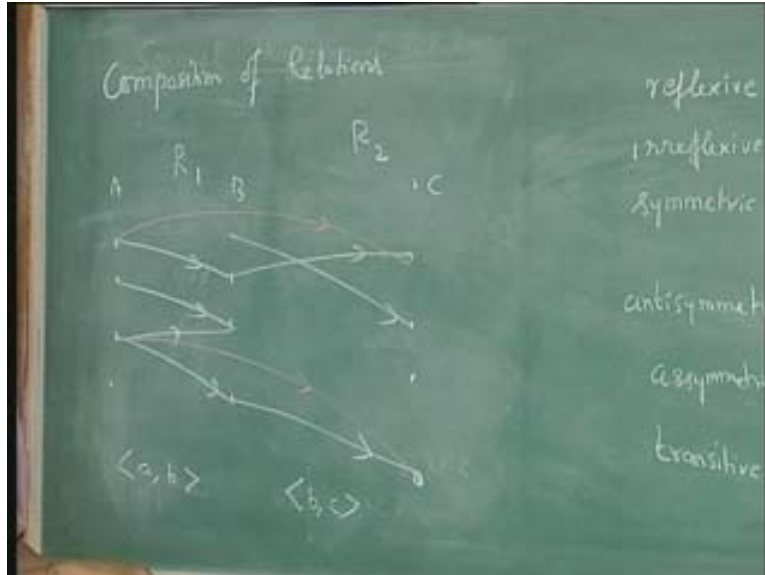 Composition of Relations
R1
R2
A
B
C
<a, b>
<b, c>
reflexive
irreflexive
symmetric
antisymmet
assymmetri
transitive